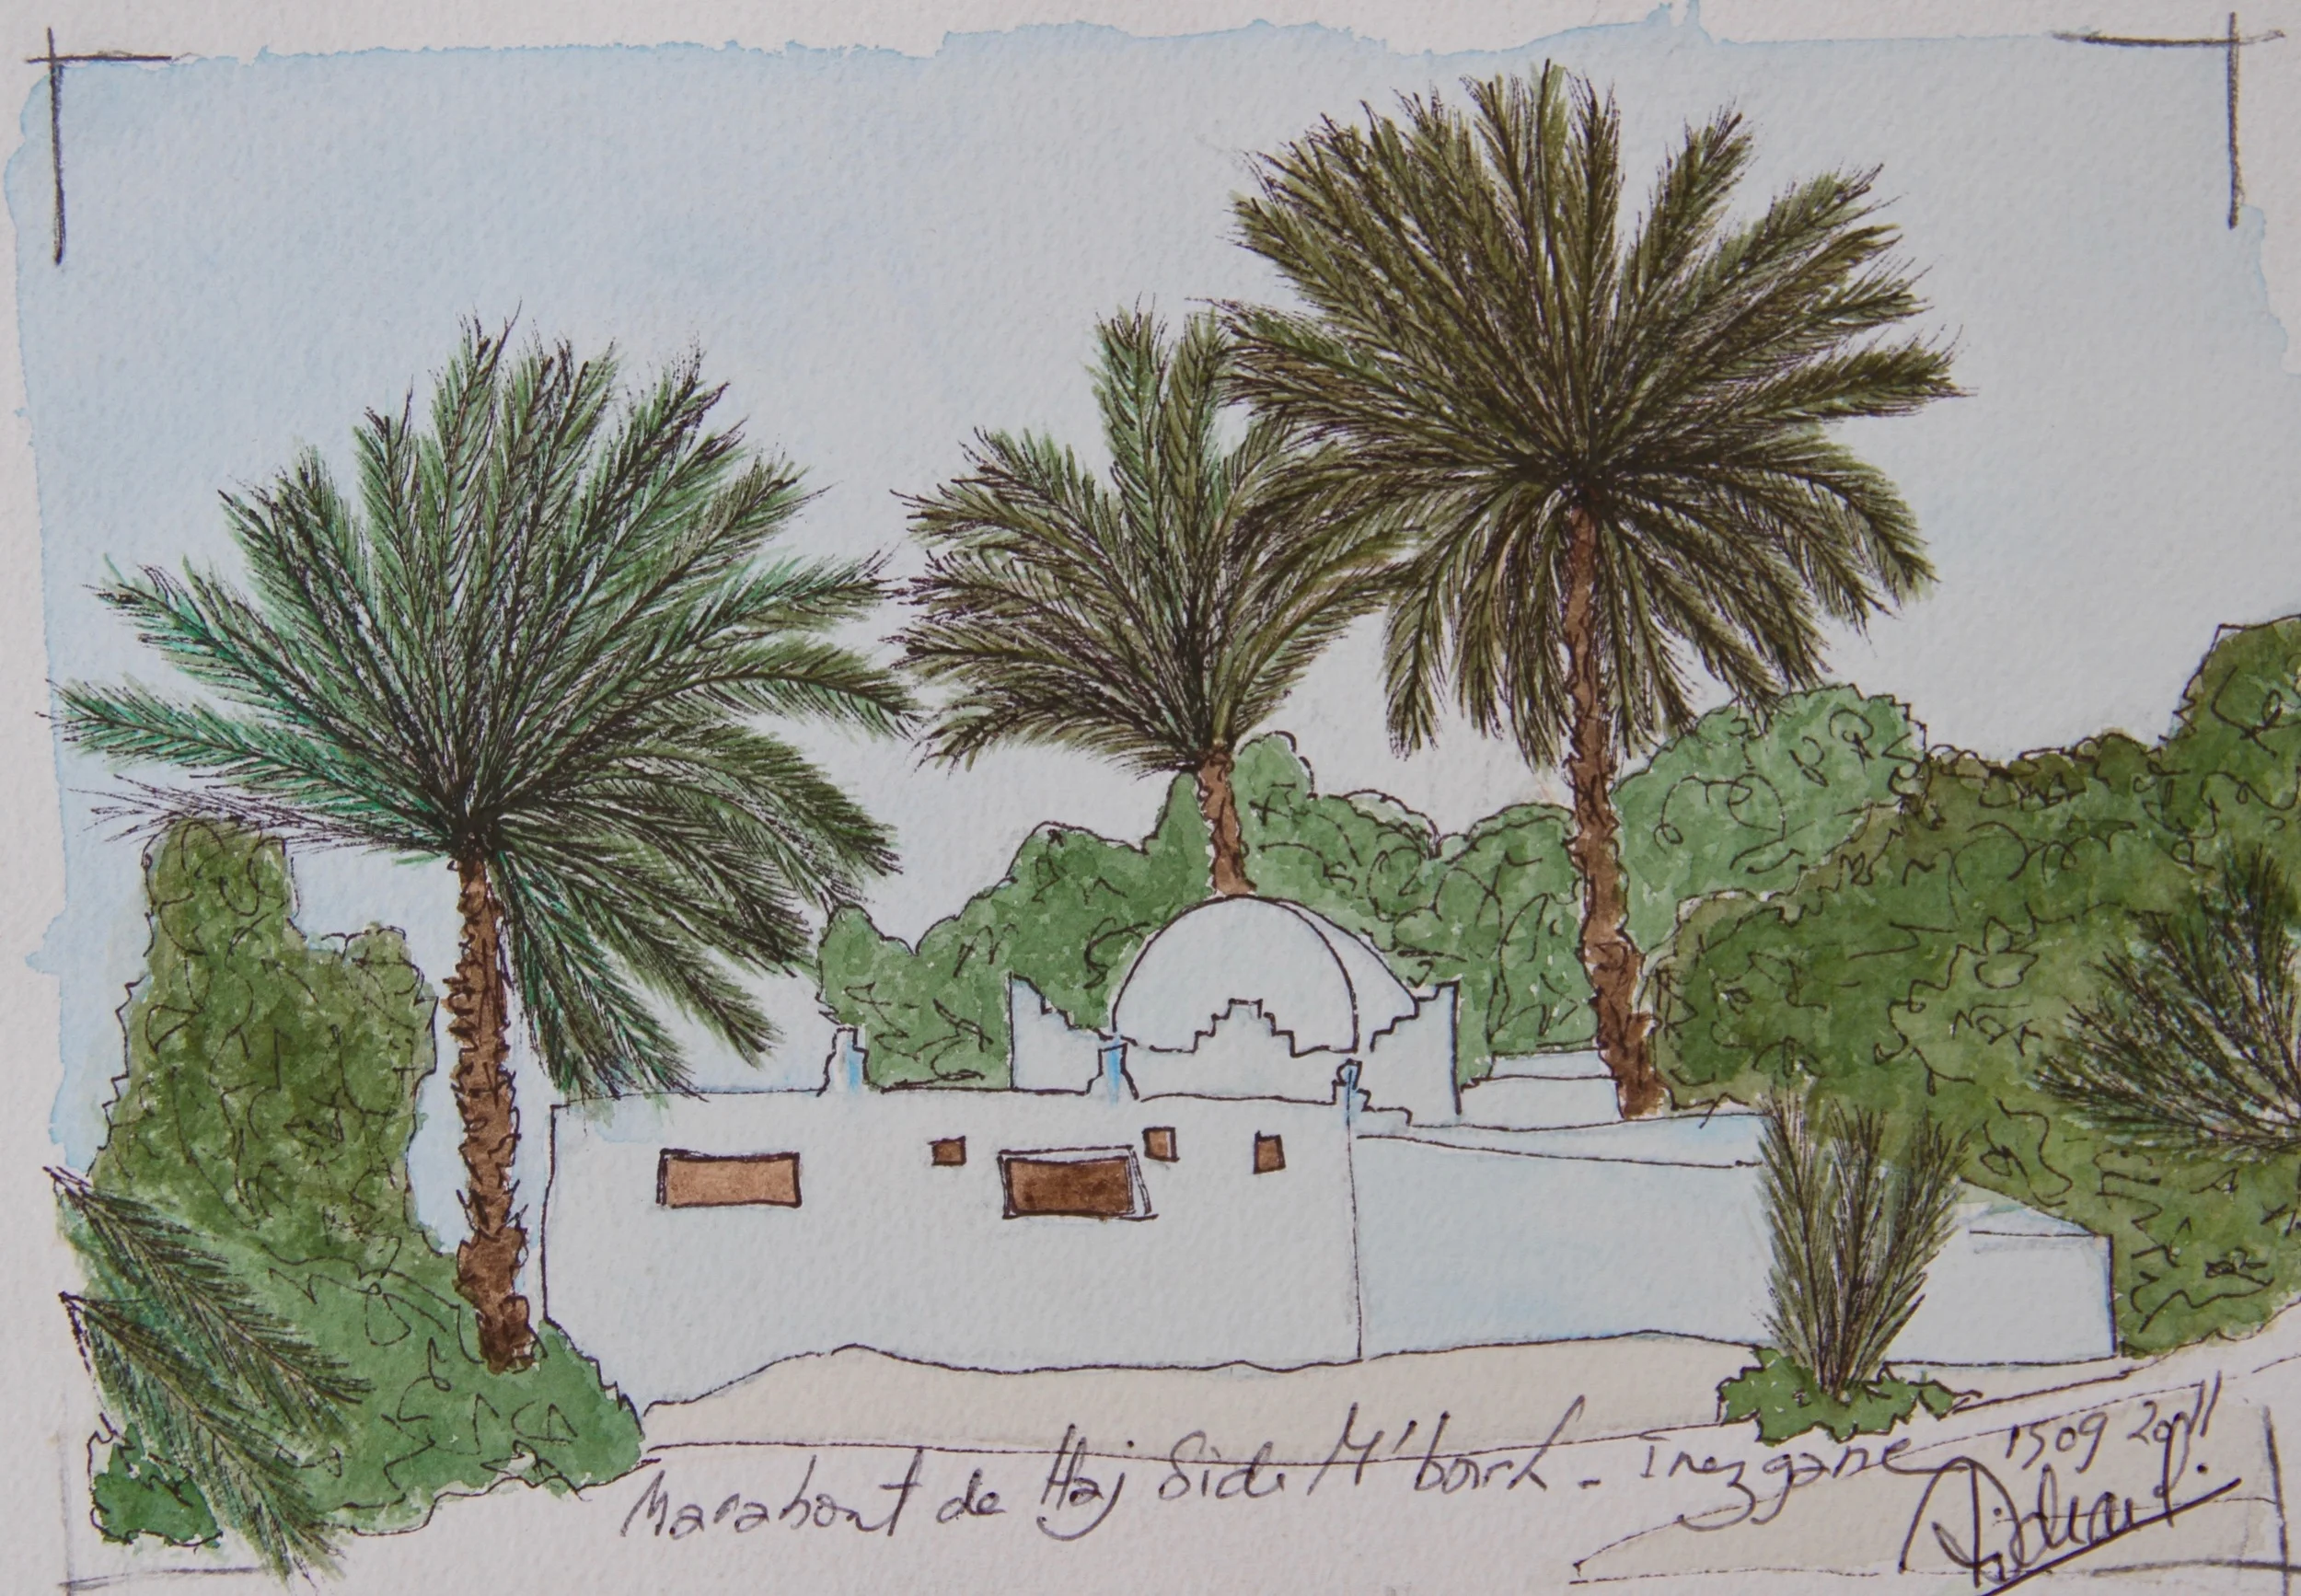 Marabout de Haj Sidi M'barek - Inezgane
1509 2011